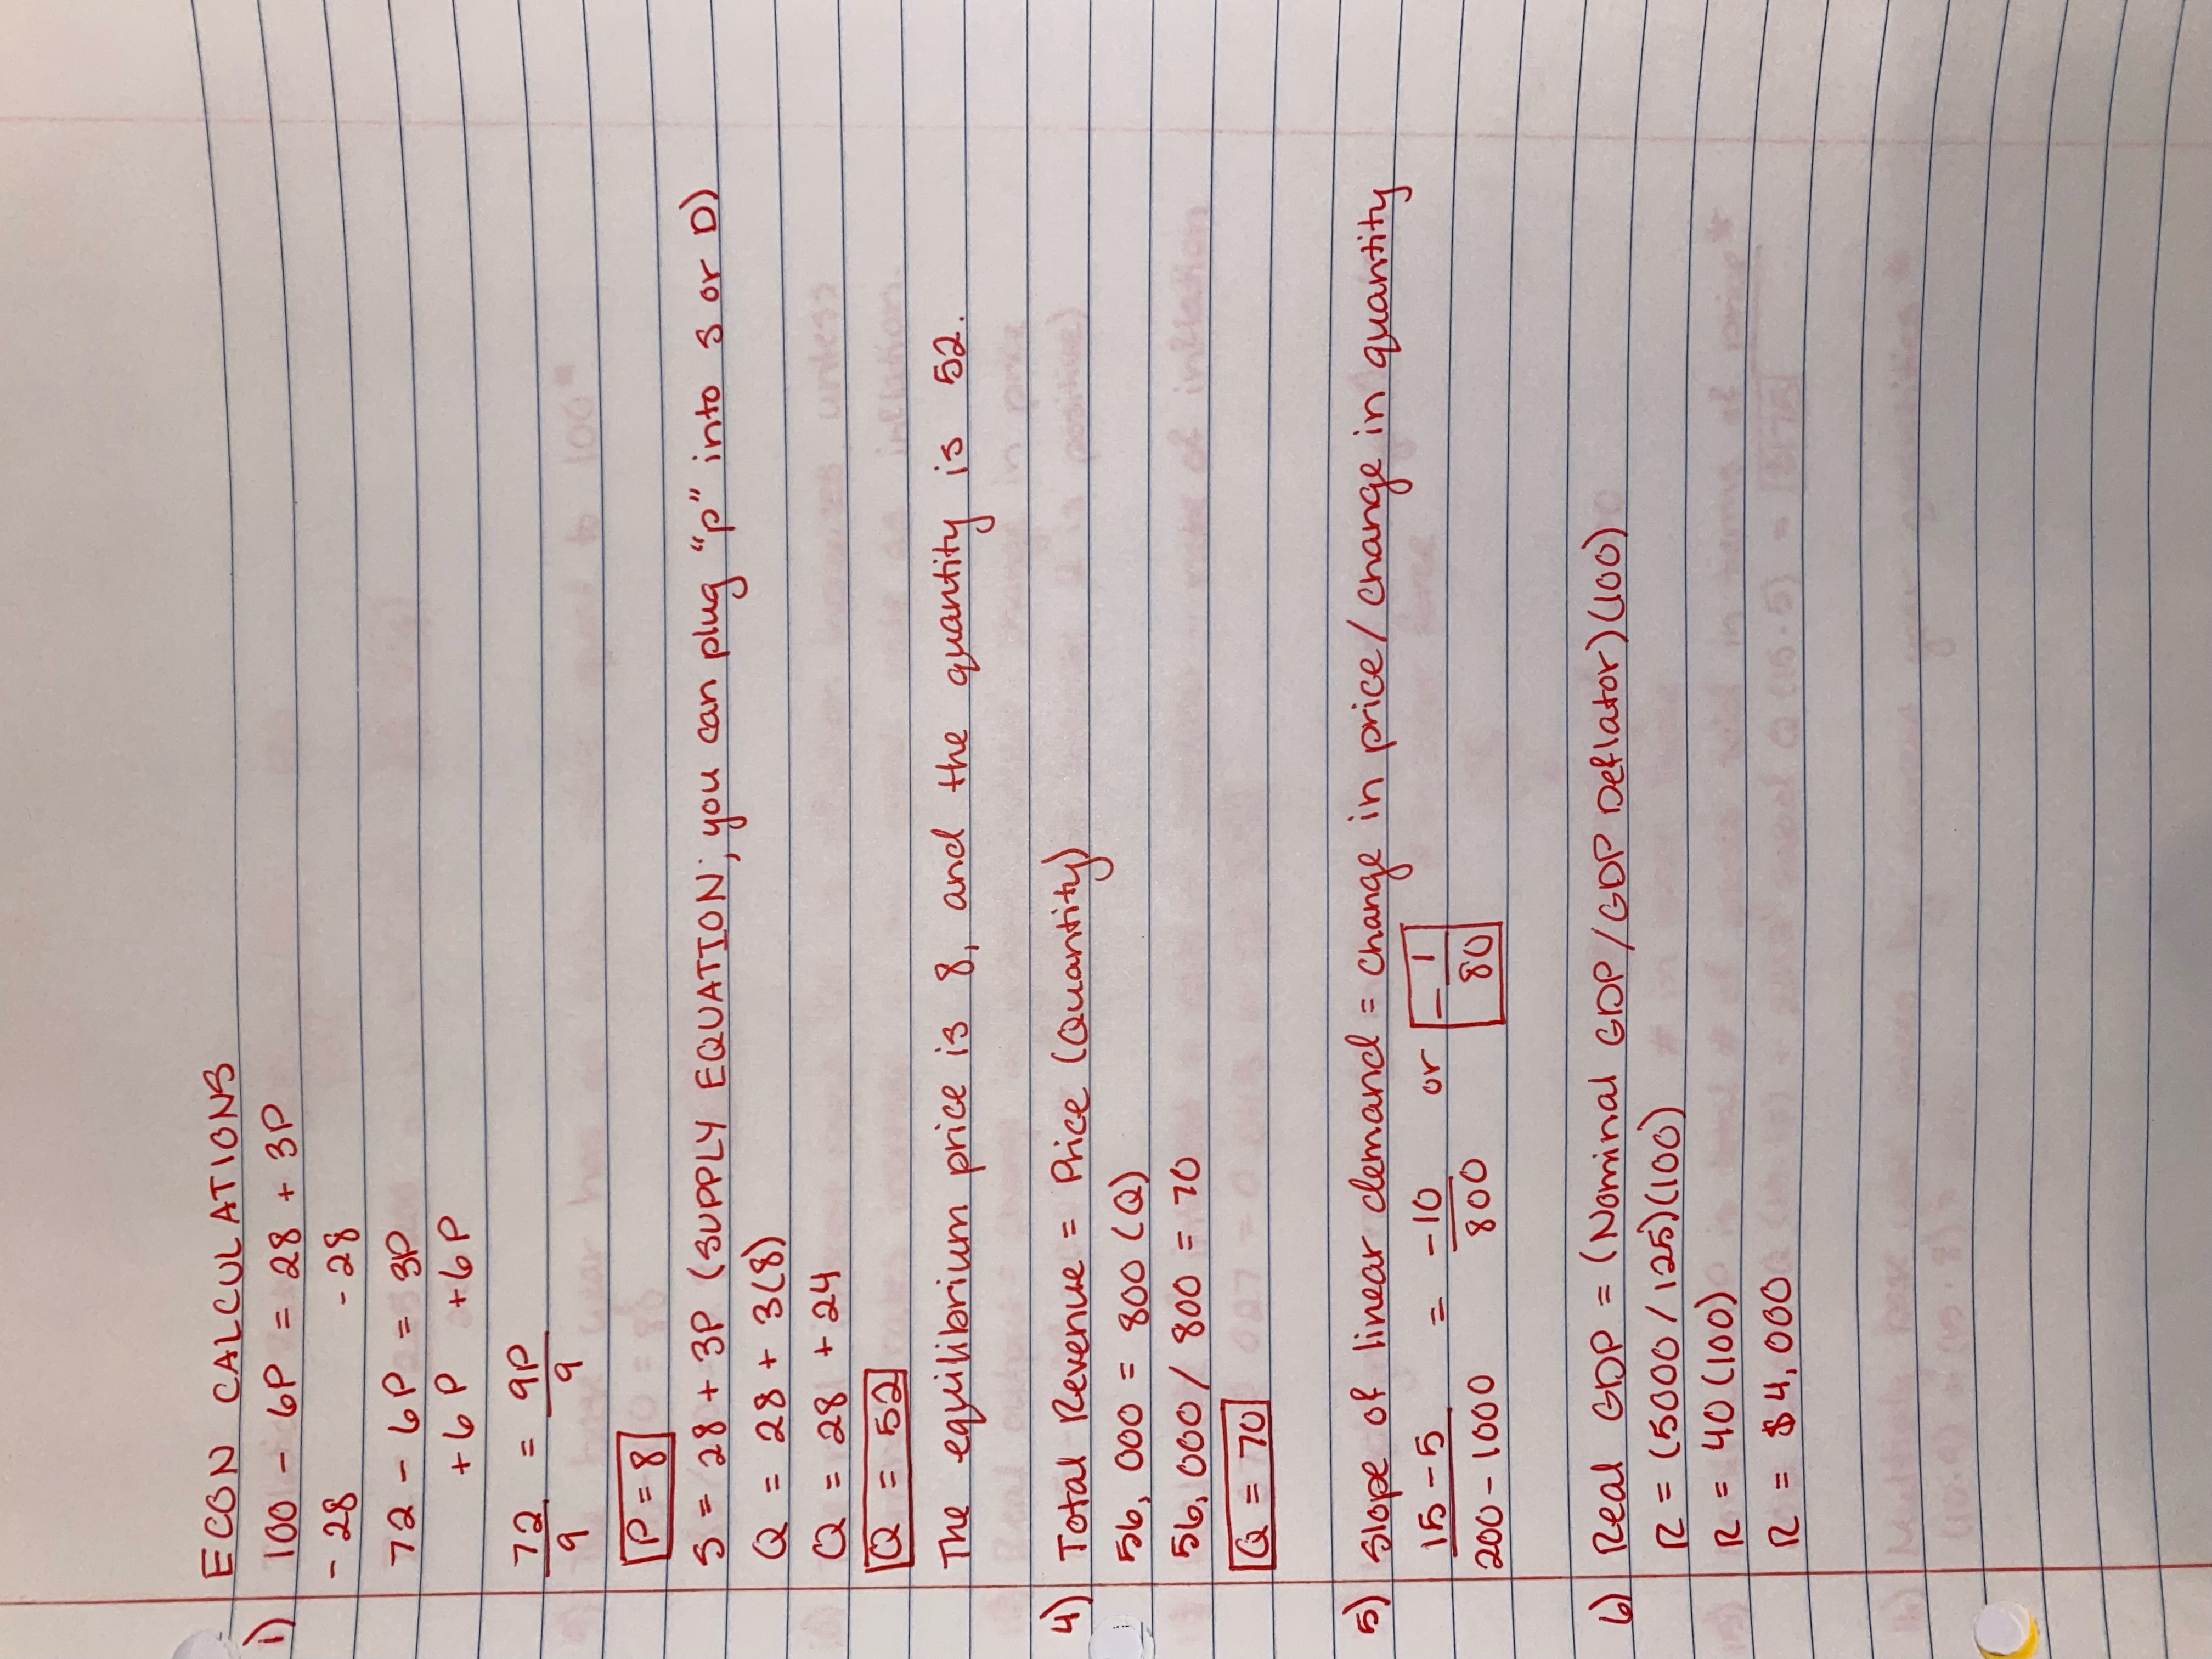 ECON CALCULATIONS
1) 100 - 6P = 28 + 3P
- 28 - 28
72 - 6P = 3P
+6P +6P
72 = 9P
9 9
P = 8
S = 28 + 3P (SUPPLY EQUATION; you can plug "p" into S or D)
Q = 28 + 3(8)
Q = 28 + 24
Q = 52
The equilibrium price is 8, and the quantity is 52.
4) Total Revenue = Price (Quantity)
56, 000 = 800 (Q)
56,000 / 800 = 70
Q = 70
5) Slope of linear demand = change in price / change in quantity
15 - 5 = -10 or - 1
200 - 1000 800 80
6) Real GDP = (Nominal GDP / GDP Deflator)(100)
R = (5000 / 125)(100)
R = 40 (100)
R = $4,000